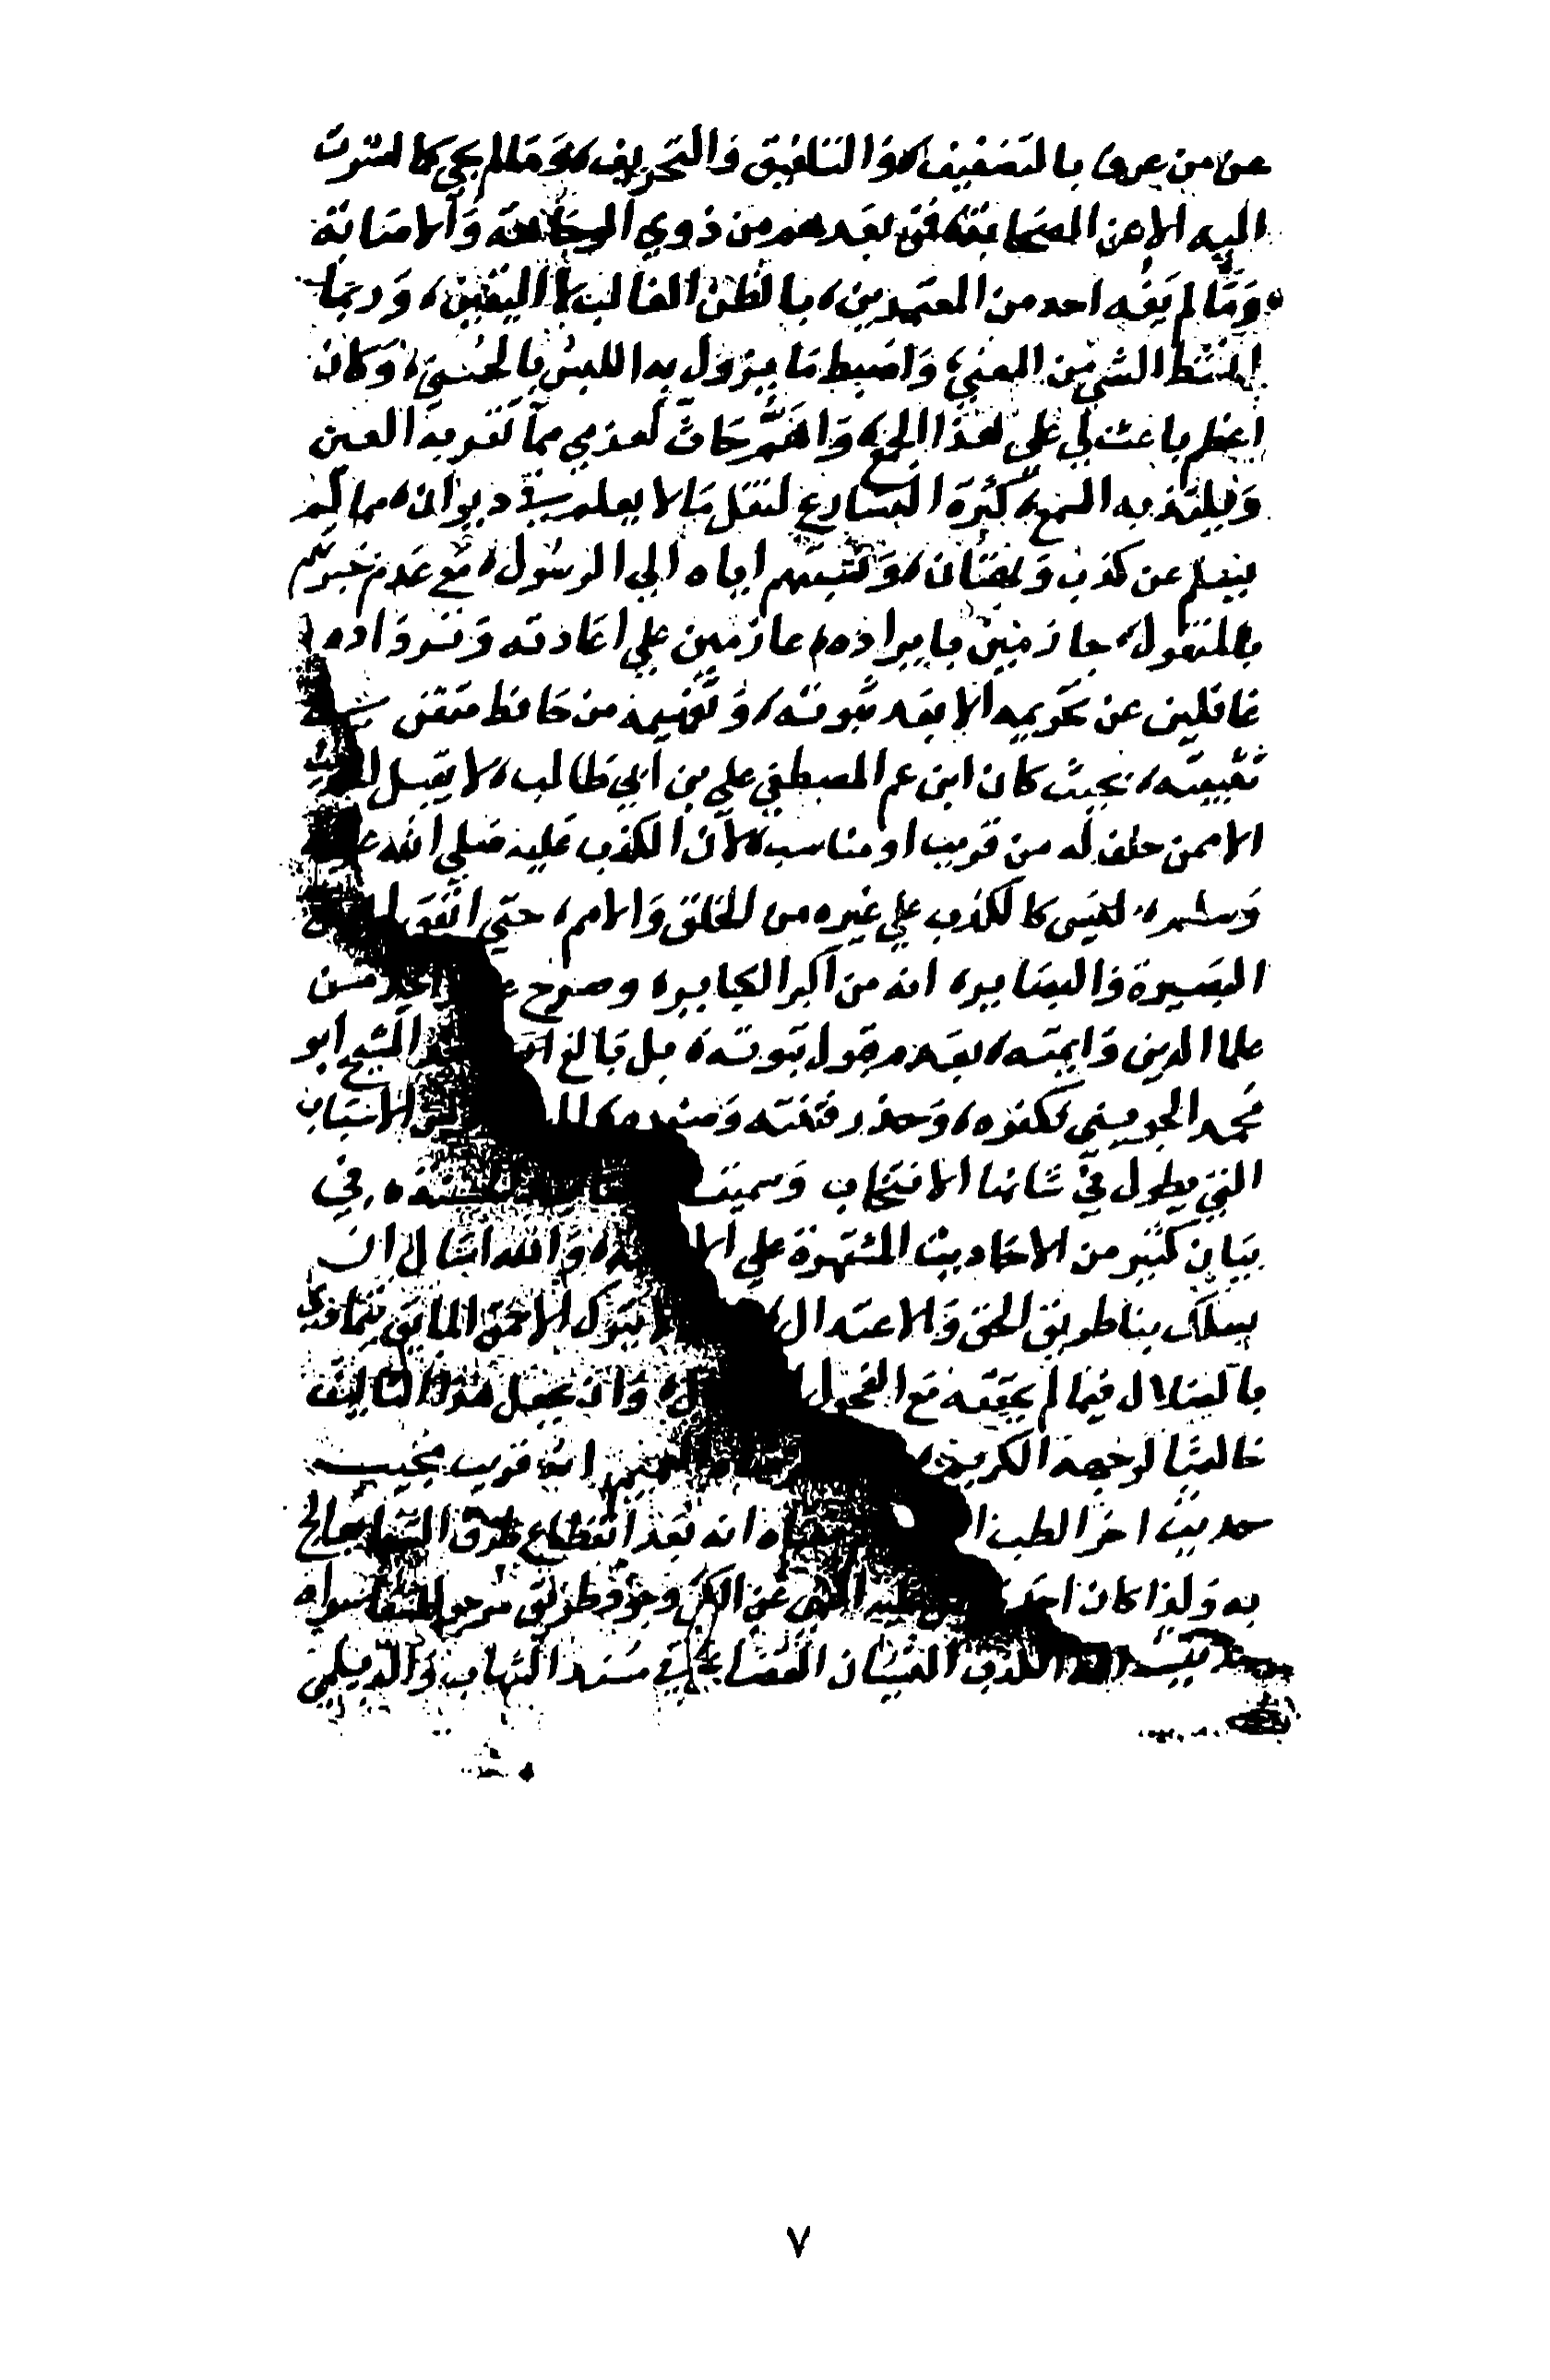 عن من عرف بالتضعيف، والتلفيق والتحريف، وما لم يجئ كما اشرت
اليه الا عن الصحابة، فمن بعدهم من ذوي الرجاحة والامانة
وما لم يفه احد من المعتمدين، بالظن الغالب لا اليقين، وربما
انشط لشي من المعني، واضبط ما يزول به اللبس بالحسني، وكان
اعظم باعث لي علي هذا الجمع، واهم حاث لعزمي مما تقر به العين
ويلتذ به السمع، كثرة التسارع لنقل ما لا يعلم في ديوان، مما لم
يسلم عن كذب وبهتان، ونسبتهم اياه الي الرسول، مع عدم خبرتهم
بالمنقول، جازمين بايراده، عازمين علي اعادته وترداده
غافلين عن تحريمه الا بعد ثبوته، وتفهيمه من حافظ متقن
تثبيته، بحيث كان ابن عم المصطفي علي بن ابي طالب، لا يقبل
الا ممن حلف له من قريب او مناسب، لان الكذب عليه صلي الله
وسلم، ليس كالكذب علي غيره من الخلق والامم، حتي اتفق
البصيرة والبصاير، انه من اكبر الكباير، وصرح واحد من
علما الدين وائمته، بعدم قبول توبته، بل بالغ الشيخ ابو
محمد الجويني فكفره، وحذر فتنته وضرره، الاسباب
التي يطول في شانها الانتخاب وسميته الحسنة، في
بيان كثير من الاحاديث المشتهرة علي الالسنة، والله اسال ان
يسلك بنا طريق الحق والاعتدال، ولا يترك الاحمق المايق يتمادي
بالضلال فيما لم يحققه مع الفحول وان يجعل هذا التاليف
خالصا لوجهه الكريم، انه قريب مجيب
حديث اخر الطب معناه انه بعد انقطاع طرق الشفا يعالج
به ولذا كان احد النهي عن الكي وجود طريق مرجو للشفا سواه
حديث الكذب النسيان القضاعي في مسند الشهاب والديلمي
٧